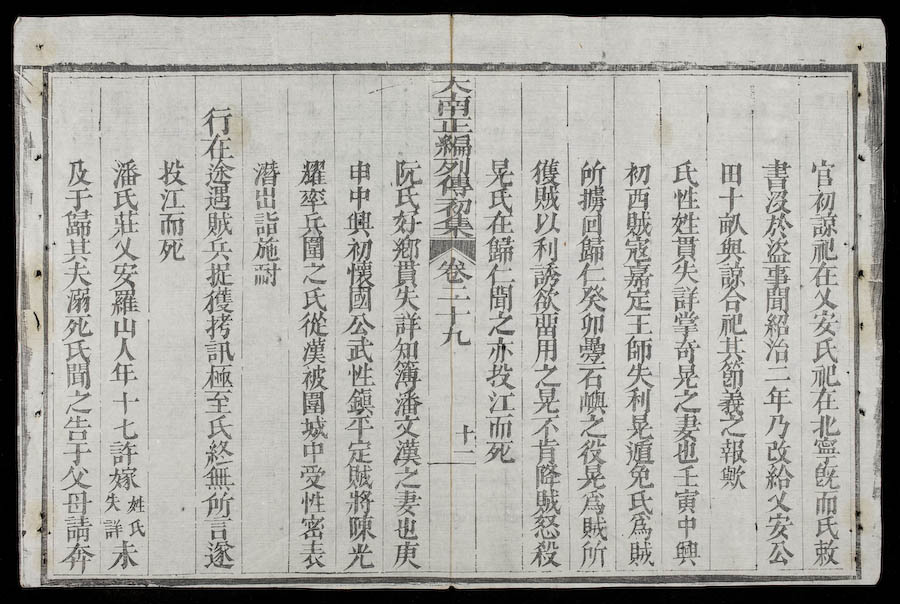 官初諒祀在乂安氏祀在北寧既而氏敕
書沒於盜事聞紹治二年乃改給乂安公
田十畝與諒合祀其節義之報歟
氏性姓貫失詳掌奇晃之妻也壬寅中興
初西賊寇嘉定王師失利晃遁免氏爲賊
所擄回歸仁癸卯疊石嶼之役晃爲賊所
獲賊以利誘欲畱用之晃不肯降賊怒殺
晃氏在歸仁聞之亦投江而死
大南正編列傳初集 卷二十九 十二
阮氏好鄉貫失詳知簿潘文漢之妻也庚
申中興初懷國公武性鎮平定賊將陳光
耀率兵圍之氏從漢被圍城中受性密表
潛出詣施耐
行在途遇賊兵捉獲拷訊極至氏終無所言遂
投江而死
潘氏莊乂安羅山人年十七許嫁姓氏失詳未
及于歸其夫溺死氏聞之告于父母請奔